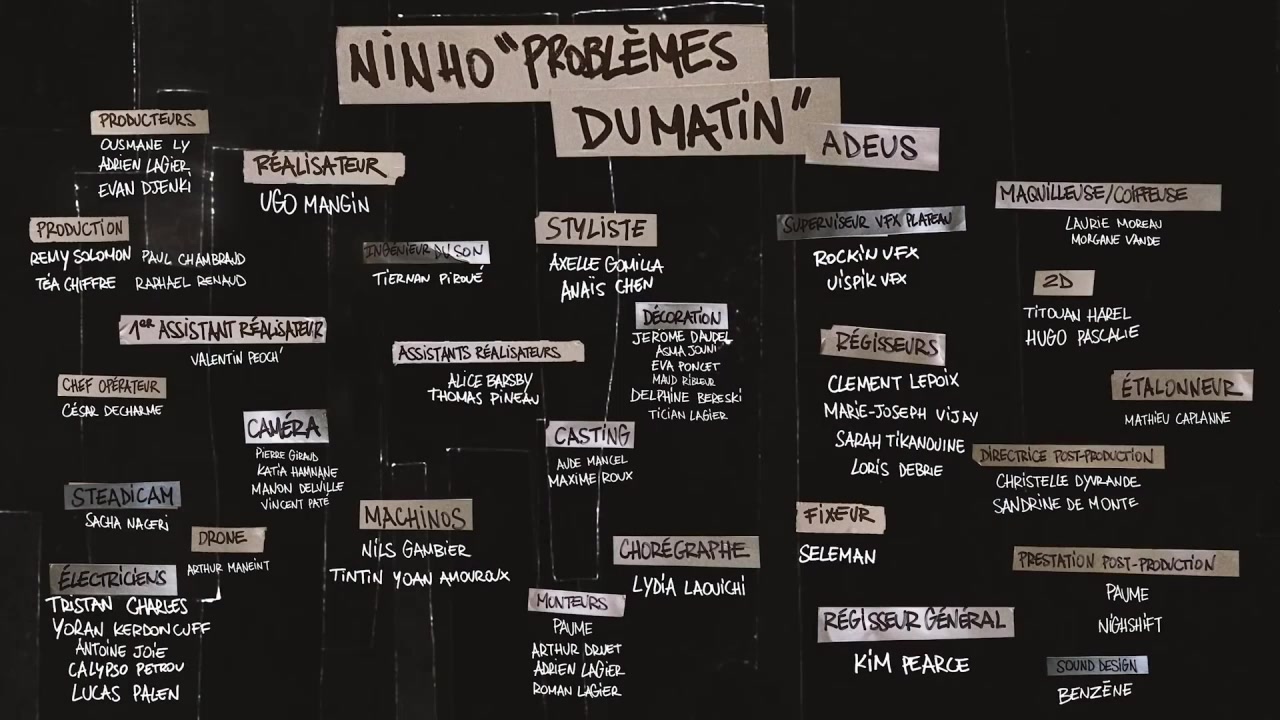 NINHO "PROBLÈMES
DU MATIN"
ADEUS
PRODUCTEURS
OUSMANE LY
ADRIEN LAGIER
EVAN DJENKI
RÉALISATEUR
UGO MANGIN
PRODUCTION
REMY SOLOMON PAUL CHAMBRAUD
TÉA CHIFFRE RAPHAEL RENAUD
INGÉNIEUR DU SON
TIERNAN PIROUÉ
STYLISTE
AXELLE GOMILLA
ANAÏS CHEN
SUPERVISEUR VFX PLATEAU
ROCKIN VFX
UISPIK VFX
MAQUILLEUSE/COIFFEUSE
LAURIE MOREAU
MORGANE VANDE
2D
TITOUAN HAREL
HUGO PASCALIE
1ER ASSISTANT RÉALISATEUR
VALENTIN PEOCH'
ASSISTANTS RÉALISATEURS
ALICE BARSBY
THOMAS PINEAU
DÉCORATION
JEROME DAUDEL
ASMA JOUNI
EVA PONCET
MAUD RIBLEUR
DELPHINE BERESKI
TICIAN LAGIER
RÉGISSEURS
CLEMENT LEPOIX
MARIE-JOSEPH VIJAY
SARAH TIKANOUINE
LORIS DEBRIE
CHEF OPÉRATEUR
CÉSAR DECHARME
ÉTALONNEUR
MATHIEU CAPLANNE
CAMÉRA
PIERRE GIRAUD
KATIA HAMNANE
MANON DELVILLE
VINCENT PATÉ
CASTING
AUDE MANCEL
MAXIME ROUX
DIRECTRICE POST-PRODUCTION
CHRISTELLE DYVRANDE
SANDRINE DE MONTE
STEADICAM
SACHA NACERI
MACHINOS
NILS GAMBIER
TINTIN YOAN AMOUROUX
FIXEUR
SELEMAN
DRONE
ARTHUR MANEINT
CHORÉGRAPHE
LYDIA LAOUICHI
PRESTATION POST-PRODUCTION
PAUME
NIGHSHIFT
ÉLECTRICIENS
TRISTAN CHARLES
YORAN KERDONCUFF
ANTOINE JOIE
CALYPSO PETROU
LUCAS PALEN
MONTEURS
PAUME
ARTHUR DRUET
ADRIEN LAGIER
ROMAN LAGIER
RÉGISSEUR GÉNÉRAL
KIM PEARCE
SOUND DESIGN
BENZĒNE